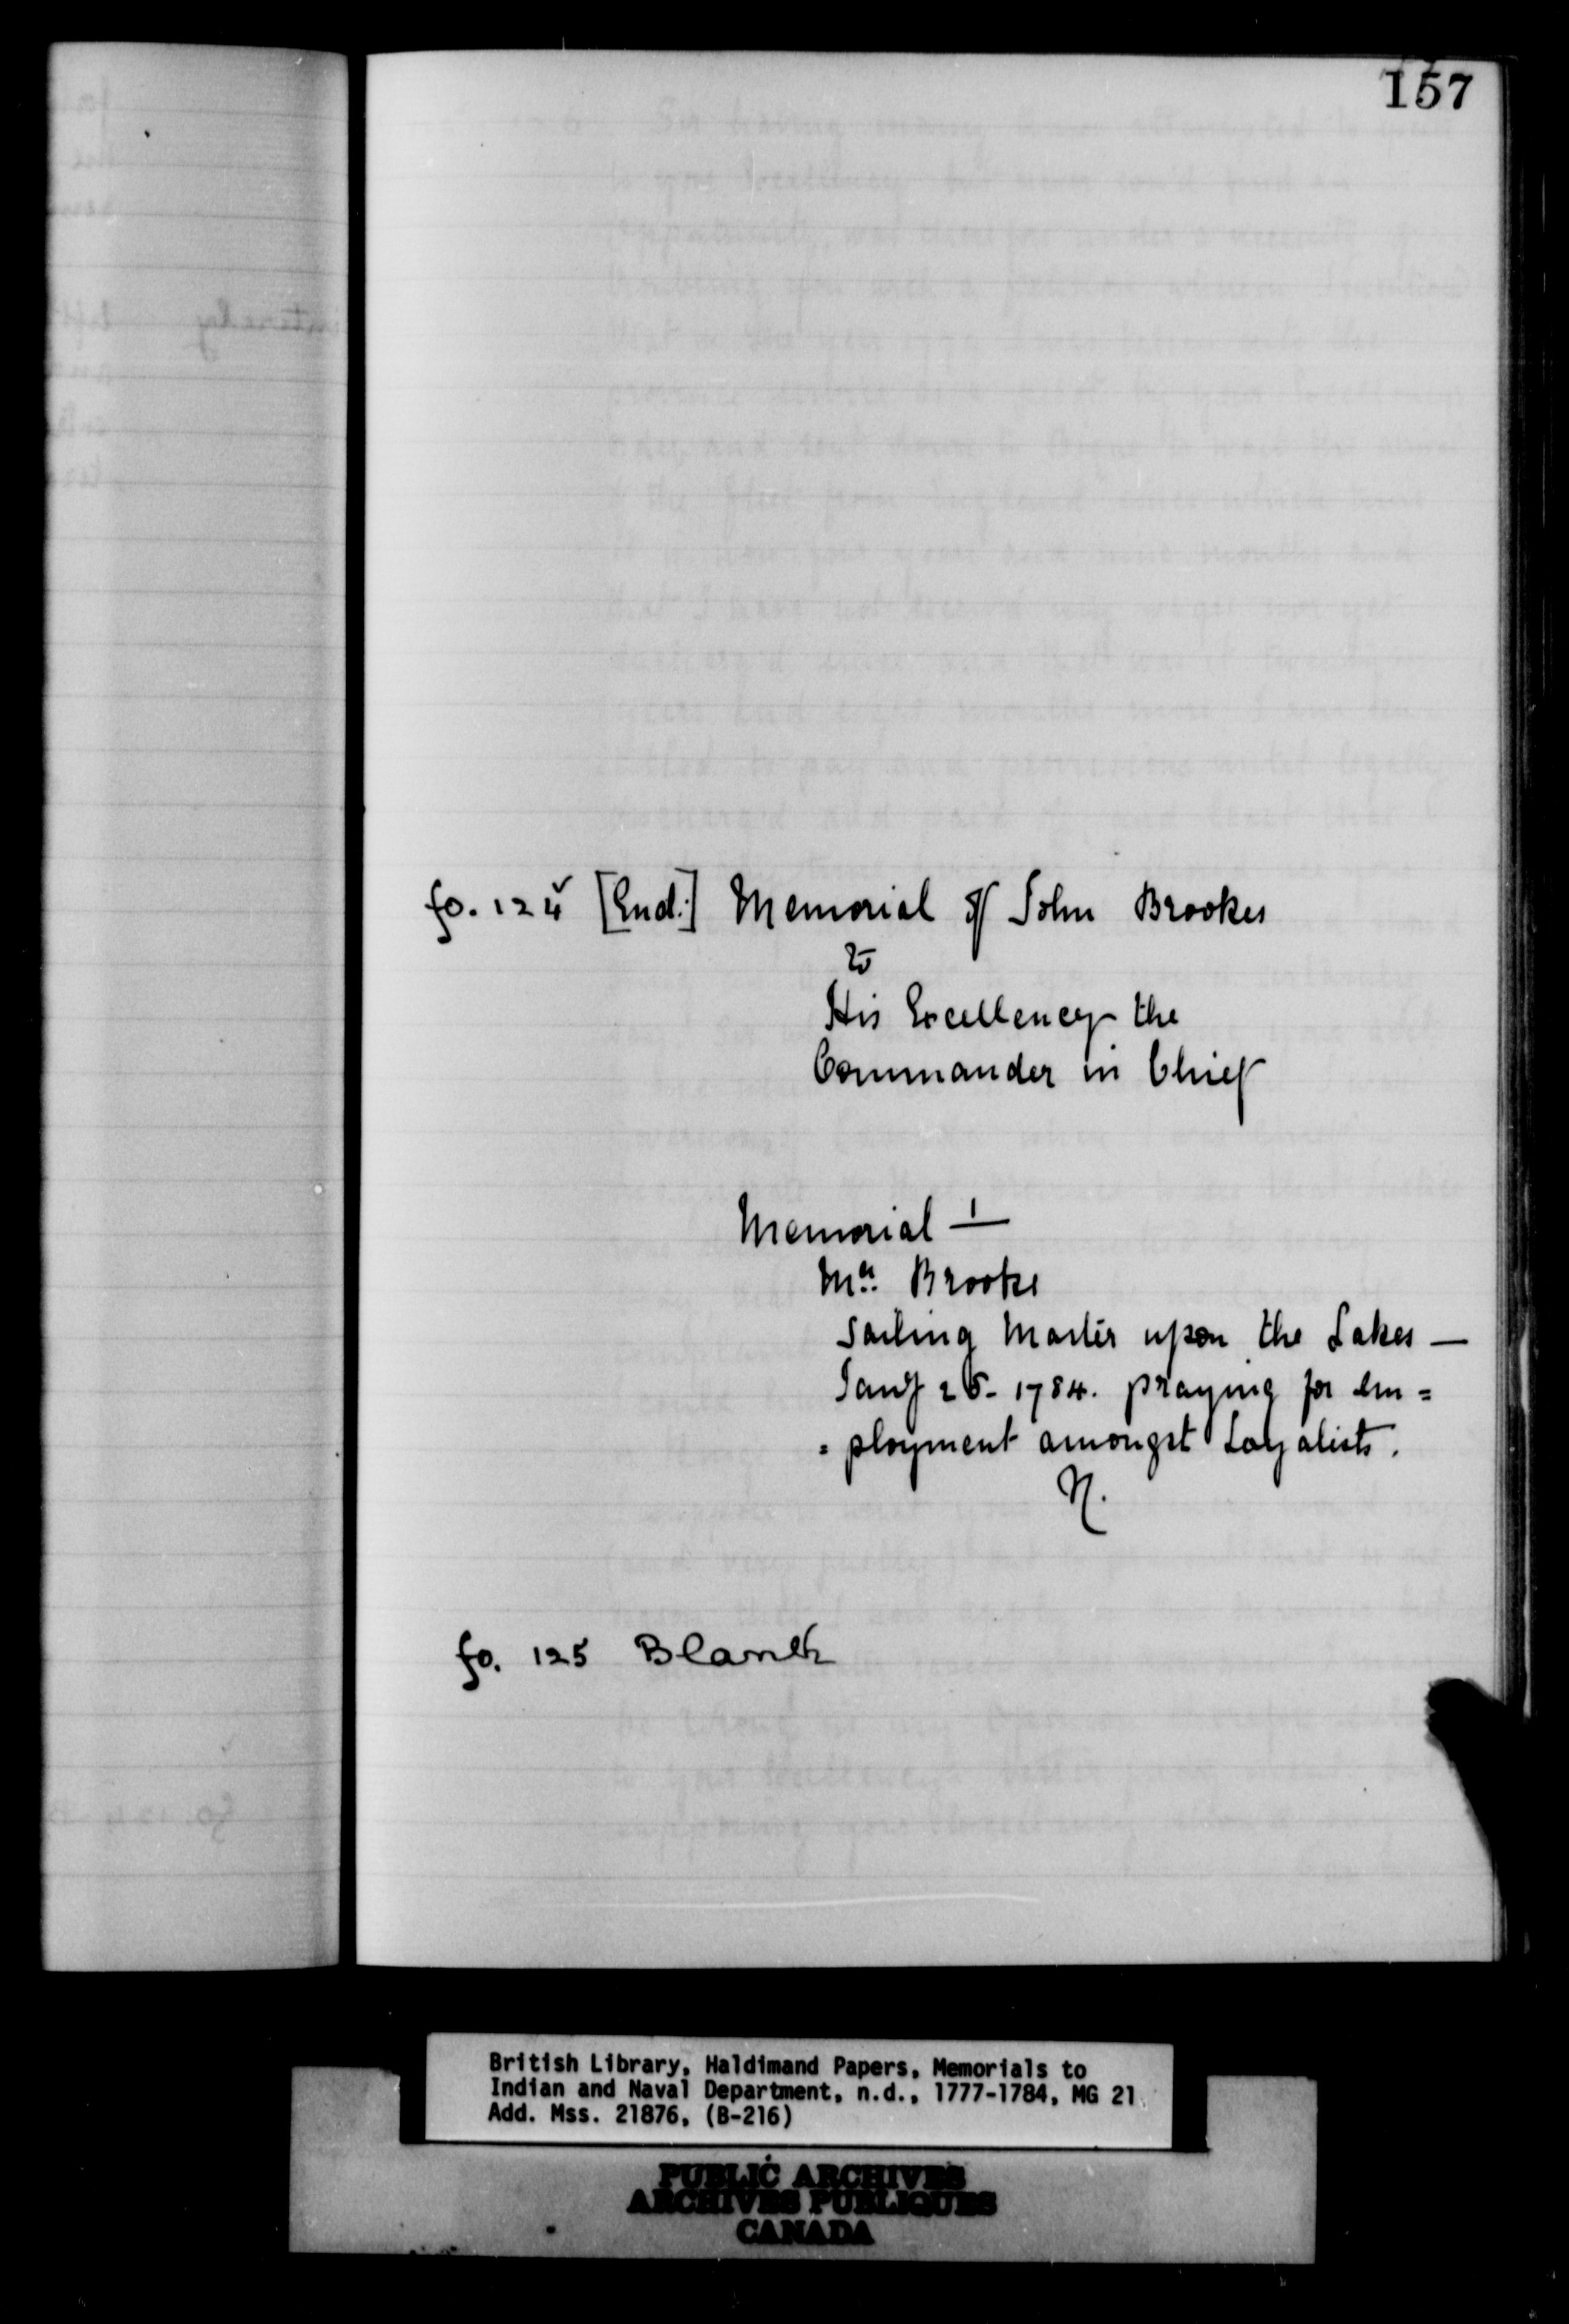 157
fo. 124v [End:] Memorial of John Brookes
to
His Excellency the
Commander in Chief
Memorial —
Mr. Brooke
Sailing Master upon the Lakes —
Jany 25- 1784. praying for em =
= ployment amongst Loyalists.
N.
fo. 125 Blank
British Library, Haldimand Papers, Memorials to
Indian and Naval Department, n.d., 1777-1784, MG 21
Add. Mss. 21876, (B-216)
PUBLIC ARCHIVES
ARCHIVES PUBLIQUES
CANADA